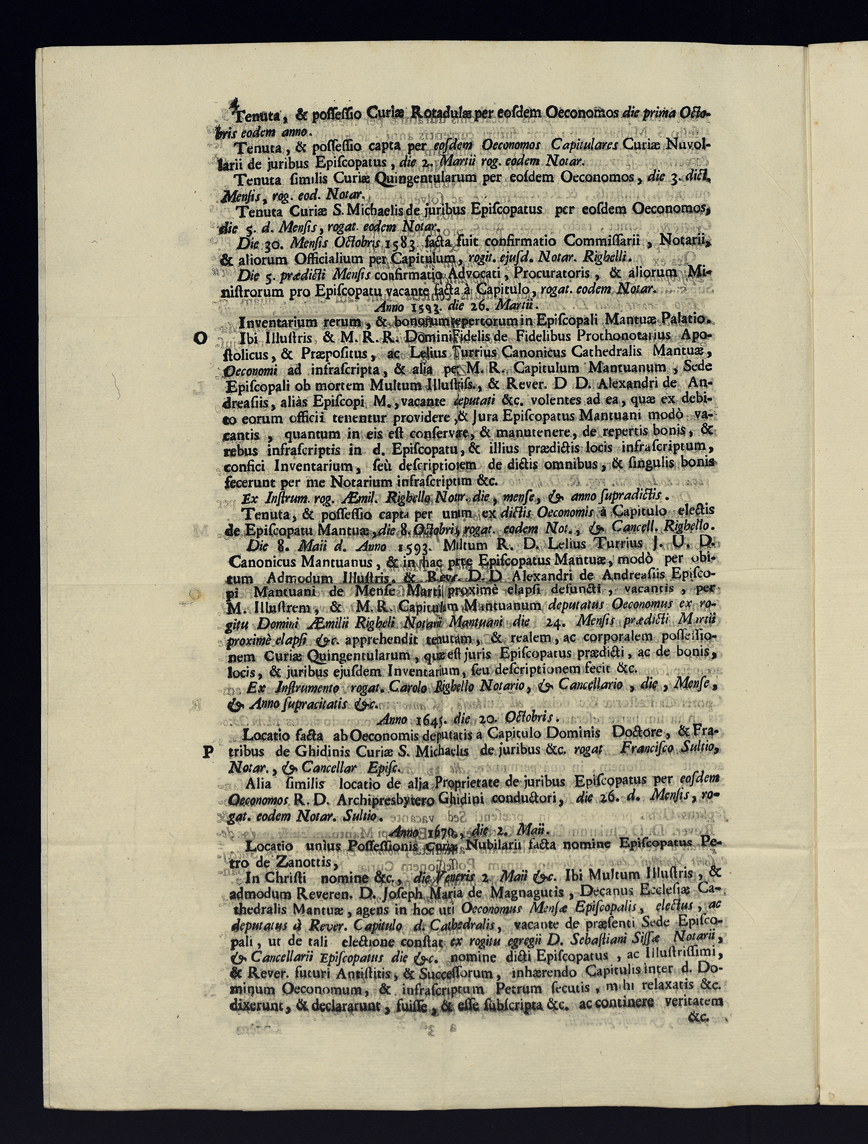 4
Tenuta, & possessio Curiæ Rotadulæ per eosdem Oeconomos die prima Octo-
bris eodem anno.
Tenuta, & possessio capta per eosdem Oeconomos Capitulares Curiæ Nuvol-
larii de juribus Episcopatus, die 2. Martii rog. eodem Notar.
Tenuta similis Curiæ Quingentularum per eosdem Oeconomos, die 3. dict.
Mensis, rog. eod. Notar.
Tenuta Curiæ S. Michaelis de juribus Episcopatus per eosdem Oeconomos,
die 5. d. Mensis, rogat. eodem Notar.
Die 30. Mensis Octobris 1583 facta fuit confirmatio Commissarii, Notarii,
& aliorum Officialium per Capitulum, rogit. ejusd. Notar. Righelli.
Die 5. prædicti Mensis confirmatio Advocati, Procuratoris, & aliorum Mi-
nistrorum pro Episcopatu vacante facta à Capitulo, rogat. eodem Notar.
Anno 1593. die 26. Martii.
Inventarium rerum, & bonorum repertorum in Episcopali Mantuæ Palatio.
O Ibi Illustris & M. R. R. Domini Fidelis de Fidelibus Prothonotarius Apo-
stolicus, & Præpositus, ac Lelius Turrius Canonicus Cathedralis Mantuæ,
Oeconomi ad infrascripta, & alia per M. R. Capitulum Mantuanum, Sede
Episcopali ob mortem Multum Illustriss., & Rever. D D. Alexandri de An-
dreasiis, aliàs Episcopi M., vacante deputati &c. volentes ad ea, quæ ex debi-
to eorum officii tenentur providere, & Jura Episcopatus Mantuani modò va-
cantis, quantum in eis est conservare, & manutenere, de repertis bonis, &
rebus infrascriptis in d. Episcopatu, & illius prædictis locis infrascriptum,
confici Inventarium, seù descriptionem de dictis omnibus, & singulis bonis
fecerunt per me Notarium infrascriptum &c.
Ex Instrum. rog. Æmil. Righello Notar. die, mense, & anno supradictis.
Tenuta, & possessio capta per unum ex dictis Oeconomis à Capitulo electis
de Episcopatu Mantuæ, die 8. Octobris, rogat. eodem Not., & Cancell. Righello.
Die 8. Maii d. Anno 1593. Multum R. D. Lelius Turrius J. U. D.
Canonicus Mantuanus, & in hac parte Episcopatus Mantuæ, modò per obi-
tum Admodum Illustris. & Rever. D. D Alexandri de Andreasiis Episco-
pi Mantuani de Mense Martii proximè elapsi defuncti, vacantis, per
M. Illustrem, & M. R. Capitulum Mantuanum deputatus Oeconomus ex ro-
gitu Domini Æmilii Righeli Notarii Mantuani die 24. Mensis prædicti Martii
proximè elapsi &c. apprehendit tenutam, & realem, ac corporalem possessio-
nem Curiæ Quingentularum, quæ est juris Episcopatus prædicti, ac de bonis,
locis, & juribus ejusdem Inventarium, seu descriptionem fecit &c.
Ex Instrumento rogat. Carolo Righello Notario, & Cancellario, die, Mense,
& Anno supracitatis &c.
Anno 1645. die 20. Octobris.
Locatio facta ab Oeconomis deputatis a Capitulo Dominis Doctore, & Fra-
P tribus de Ghidinis Curiæ S. Michaelis de juribus &c. rogat Francisco Sultio,
Notar., & Cancellar Episc.
Alia similis locatio de alia Proprietate de juribus Episcopatus per eosdem
Oeconomos R. D. Archipresbytero Ghidini conductori, die 26. d. Mensis, ro-
gat. eodem Notar. Sultio.
Anno 1670., die 2. Maii.
Locatio unius Possessionis Curiæ Nubilarii facta nomine Episcopatus Pe-
tro de Zanottis,
In Christi nomine &c., die Veneris 2. Maii &c. Ibi Multum Illustris, &
admodum Reveren. D. Joseph Maria de Magnagutis, Decanus Ecclesiæ Ca-
thedralis Mantuæ, agens in hoc uti Oeconomus Mensæ Episcopalis, electus, ac
deputatus à Rever. Capitulo d. Cathedralis, vacante de præsenti Sede Episco-
pali, ut de tali electione constat ex rogitu egregii D. Sebastiani Sissæ Notarii,
& Cancellarii Episcopatus die &c. nomine dicti Episcopatus, ac Illustrissimi,
& Rever. futuri Antistitis, & Successorum, inhærendo Capitulis inter d. Do-
minum Oeconomum, & infrascriptum Petrum secutis, mihi relaxatis &c.
dixerunt, & declararunt, fuisse, & esse subscripta &c. ac continere veritatem
&c.